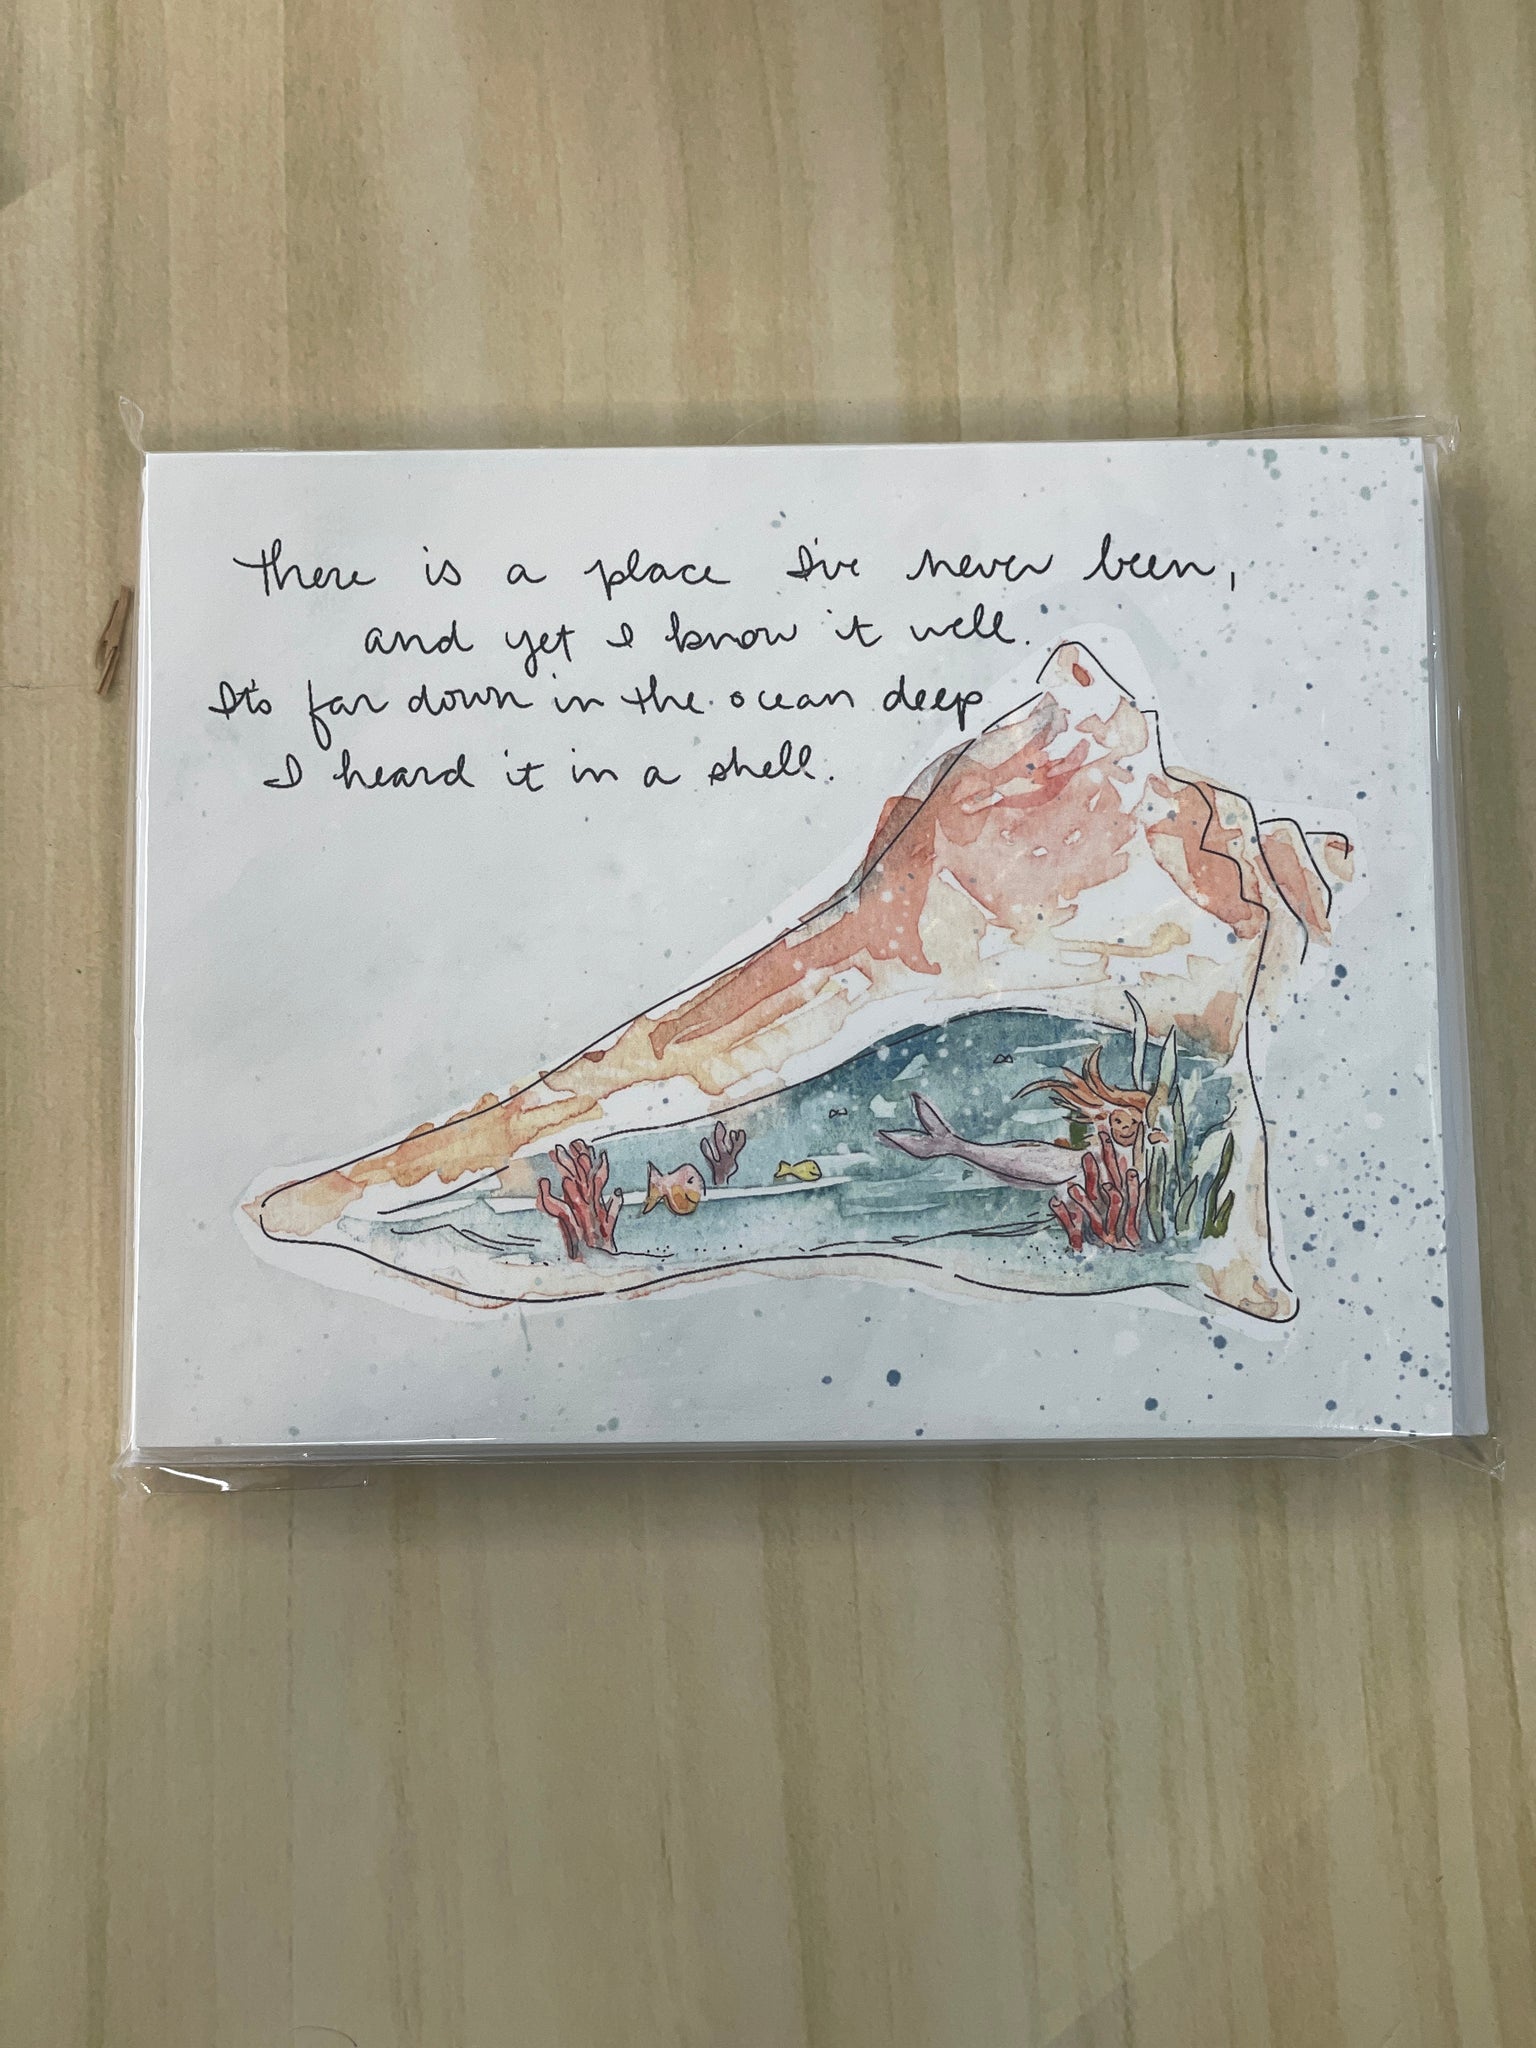 There is a place I've never been,
and yet I know it well.
It's far down in the ocean deep
I heard it in a shell.